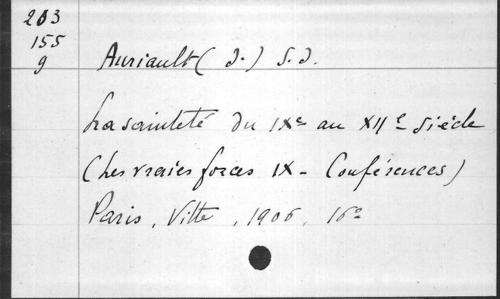 203
155
9
Auriault (J.) S.J.
La sainteté du IXe au XIIe siècle
(Les vraies forces IX - Conférences)
Paris, Vitte, 1906, 16°